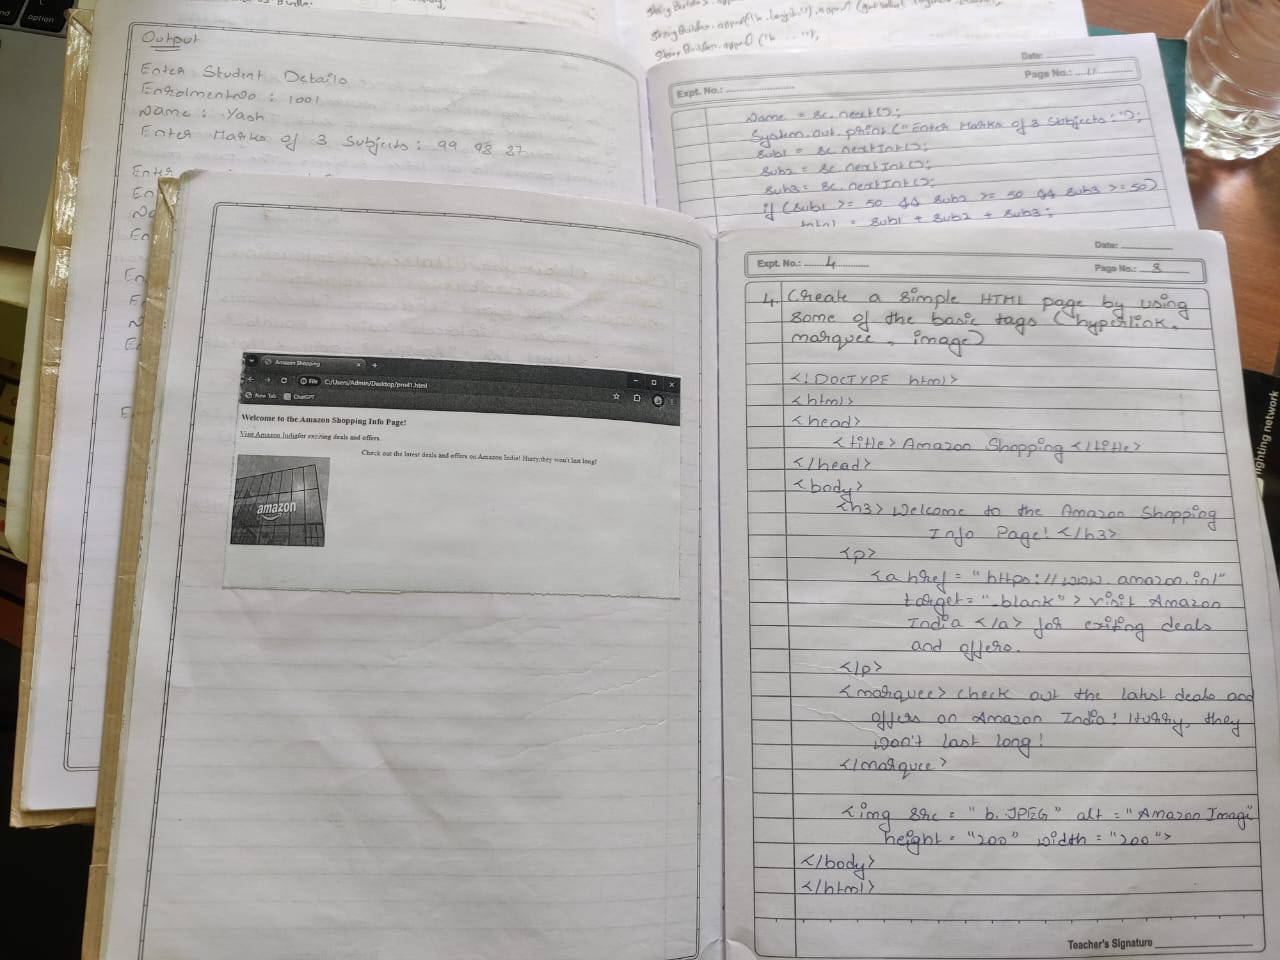 option
Output
Enter Student Details
Enrolment No : 1001
Name : Yash
Enter Marks of 3 Subjects : 99 98 87
Enter
En
En
En
En
Date:
Expt. No.:
Page No.: 11
Name = sc.next();
System.out.print("Enter Marks of 3 Subjects:");
sub1 = sc.nextInt();
sub2 = sc.nextInt();
sub3 = sc.nextInt();
if (sub1 >= 50 && sub2 >= 50 && sub3 >= 50)
total = sub1 + sub2 + sub3;
Amazon Shopping
File C:/Users/Admin/Desktop/pro41.html
New Tab ChatGPT
Welcome to the Amazon Shopping Info Page!
Visit Amazon Indiafor exciting deals and offers.
Check out the latest deals and offers on Amazon India! Hurry,they won't last long!
amazon
Date:
Expt. No.: 4
Page No.: 8
4. Create a simple HTML page by using
some of the basic tags (hyperlink,
marquee, image)
<!DOCTYPE html>
<html>
<head>
<title> Amazon Shopping </title>
</head>
<body>
<h3> Welcome to the Amazon Shopping
Info Page! </h3>
<p>
<a href = "https://www.amazon.in/"
target = "_blank" > visit Amazon
India </a> for exiting deals
and offers.
</p>
<marquee> check out the latest deals and
offers on Amazon India! Hurry, they
won't last long!
</marquee>
<img src = "b.JPEG" alt = "Amazon Imag
height = "200" width = "200">
</body>
</html>
Teacher's Signature
ighting network